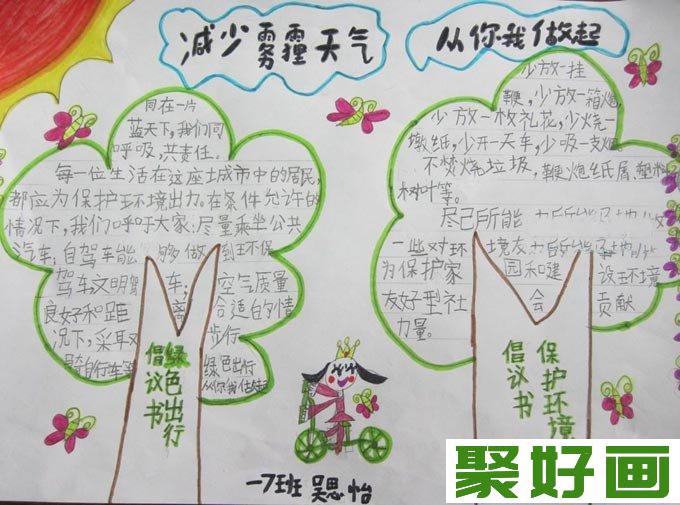 减少雾霾天气
从你我做起
同在一片
蓝天下,我们同
呼吸,共责任.
每一位生活在这座城市中的居民,
都应为保护环境出力。在条件允许的
情况下,我们呼吁大家:尽量乘坐公共
汽车;自驾车能够做到环保
驾车文明驾车;空气质量
良好和距离合适的情
况下,采取步行
骑自行车等绿色出行
从你我做起
绿色出行
倡议书
少放一挂
鞭,少放一箱炮,
少放一枚礼花,少烧一
墩纸,少开一天车,少吸一支烟
不焚烧垃圾,鞭炮纸屑、塑料
树叶等。
尽己所能
一些对环境友
为保护家园和建设环境
友好型社会贡献
力量。
保护环境
倡议书
一7班 吴思怡
聚好画